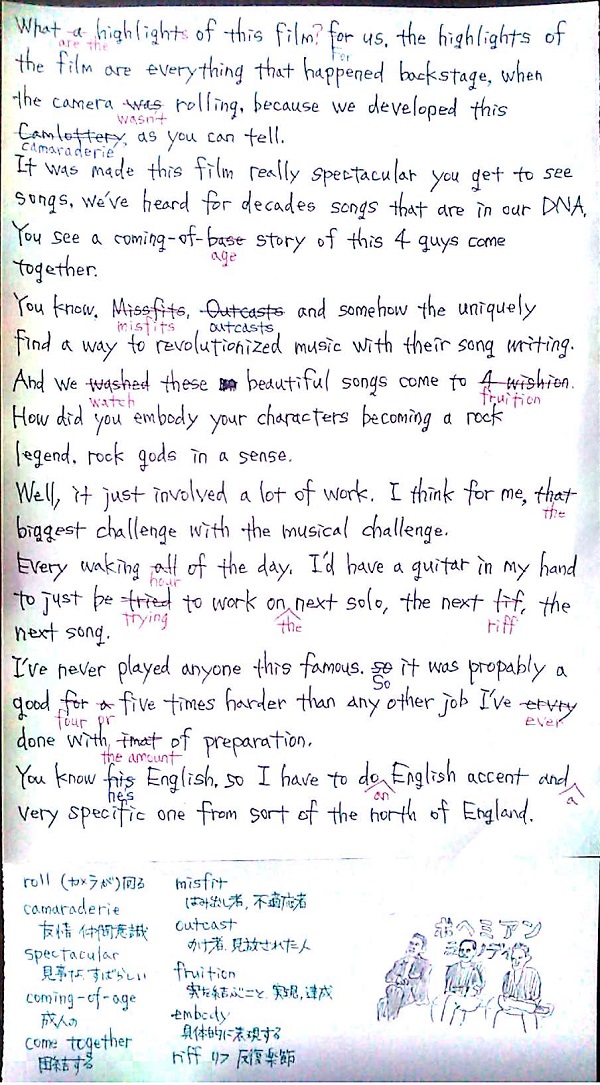 What a highlights of this film? for us, the highlights of
are the For
the film are everything that happened backstage, when
the camera was rolling, because we developed this
wasn't
Camlottery, as you can tell.
camaraderie
It was made this film really spectacular you get to see
songs, we've heard for decades songs that are in our DNA.
You see a coming-of-base story of this 4 guys come
age
together.
You know. Missfits, Outcasts and somehow the uniquely
misfits outcasts
find a way to revolutionized music with their song writing.
And we washed these beautiful songs come to A wishion.
watch fruition
How did you embody your characters becoming a rock
legend, rock gods in a sense.
Well, it just involved a lot of work. I think for me, that
the
biggest challenge with the musical challenge.
Every waking all of the day. I'd have a guitar in my hand
hour
to just be tried to work on next solo, the next fif, the
trying the riff
next song.
I've never played anyone this famous. so it was propably a
So
good for a five times harder than any other job I've evry
four or ever
done with, that of preparation.
the amount
You know his English, so I have to do English accent and
he's an a
very specific one from sort of the north of England.
roll (カメラが)回る
camaraderie
友情 仲間意識
spectacular
見事な, すばらしい
coming-of-age
成人の
come together
団結する
misfit
はみ出し者, 不適応者
outcast
のけ者, 見放された人
fruition
実を結ぶこと, 実現, 達成
embody
具体的に表現する
riff リフ 反復楽節
ボヘミアン